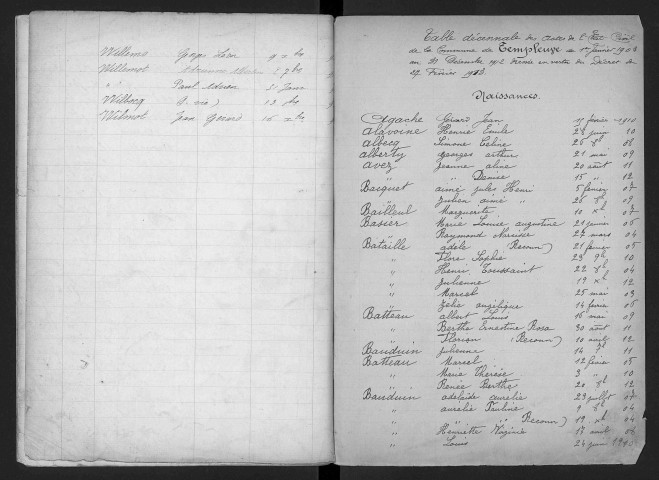 Willems Georges Léon 9 xbre
Willemot 17 bre
" Paul 21 Janv
Wilbecq 13
Wilmot Jean Gérard 16 xbre
Table décennale des actes de l'Etat Civil
de la Commune de Templeuve du 1er Janvier 1903
au 31 Décembre 1912 dressée en vertu du Décret du
Février
Naissances.
Agache Girard Jean février 1910
Alavoine Henri Emile 24 juin 10
Albecq Simone Céline 26 8bre 08
Alberty Georges arthur 21 mai 09
Avez Jeanne aline 20 août 11
" Denise 15 " 12
Basquet aimé Jules Henri 5 février 07
" Julien aimé " 26 8b 09
Bailleul Marguerite 10 xb 07
Basier Marie Louise augustine 21 janvier 06
" Raymond Narcisse 22 mars 04
Bataille adèle (Reconn) 21 février 05
" Flore Sophie 23 9b 10
" Henri Toussaint 22 8b 04
" Julienne 19 xb 12
" Marcel 25 mai 03
" Zélie angélique 14 février 06
Batteau albert Louis 16 mai 09
" Berthe Ernestine Rosa 30 août 11
" Florian (Reconn) 10 août 12
Bauduin Julienne 14 11
Batteau Marcel 12 février 05
" Marie Thérèse 3 " 10
" Renée Berthe 20 8b 12
Bauduin adelaïde aurélie 23 juillet 07
" aurélie Pauline 9 8b 04
" " (Reconn) 19 xb 04
" Henriette Virginie 17 août 06
" Louis 24 juin 1910